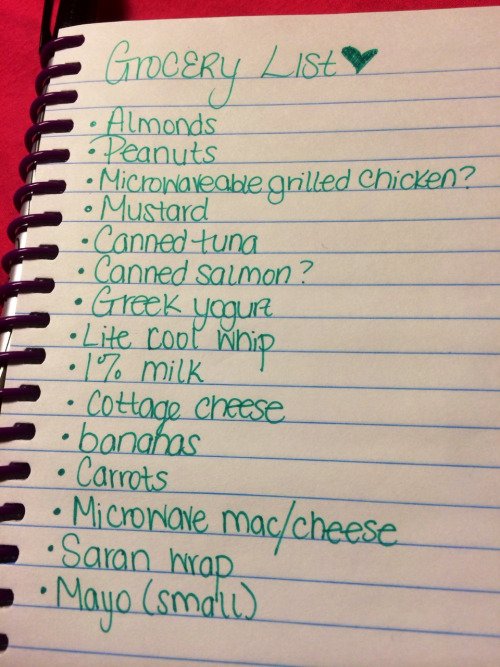 Grocery List ♥
• Almonds
• Peanuts
• Microwaveable grilled chicken?
• Mustard
• Canned tuna
• Canned salmon?
• Greek yogurt
• Lite cool whip
• 1% milk
• cottage cheese
• bananas
• Carrots
• Microwave mac/cheese
• Saran wrap
• Mayo (small)